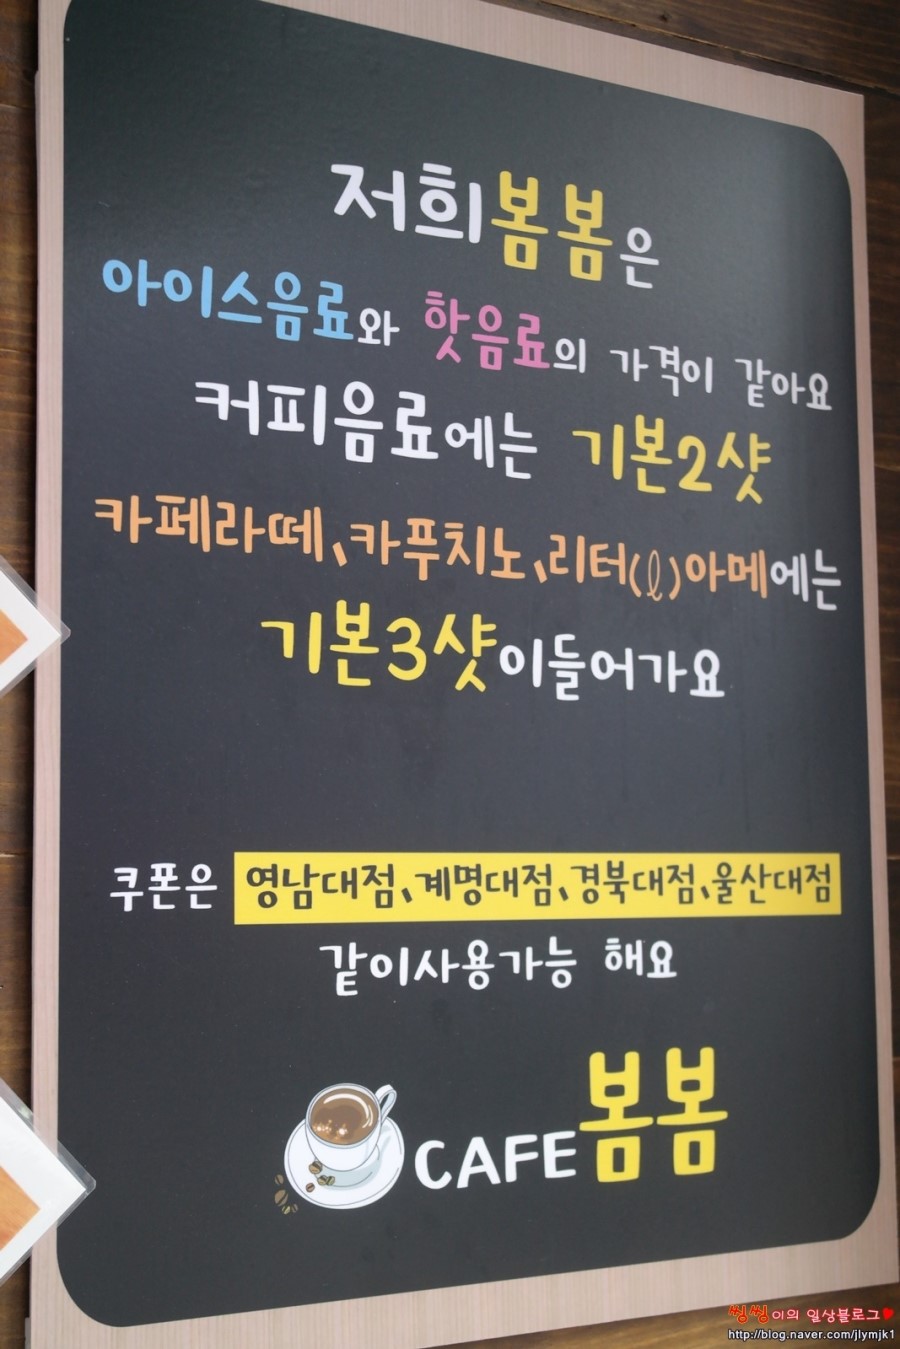 저희봄봄은
아이스음료와 핫음료의 가격이 같아요
커피음료에는 기본2샷
카페라떼、카푸치노、리터(ℓ)아메에는
기본3샷이들어가요
쿠폰은 영남대점、계명대점、경북대점、울산대점
같이사용가능 해요
CAFE봄봄
씽씽이의 일상블로그♥
http://blog.naver.com/jlymjk1